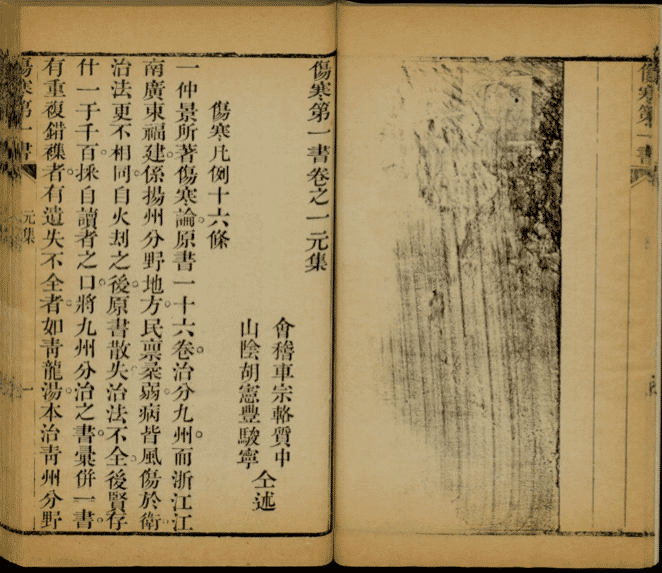 傷寒第一書
傷寒第一書卷之一元集
會稽車宗輅質中
山陰胡憲豐駿寧
仝述
傷寒凡例十六條
一仲景所著傷寒論。原書一十六卷。治分九州。而浙江江
南廣東福建。係揚州分野。地方民禀柔弱。病皆風傷於衛。
治法更不相同。自火刼之後。原書散失。治法不全。後賢存
什一于千百。採自讀者之口。將九州分治之書。彙併一書。
有重複錯襍者。有遺失不全者。如靑龍湯。本治靑州分野
傷寒第一書
元集
一